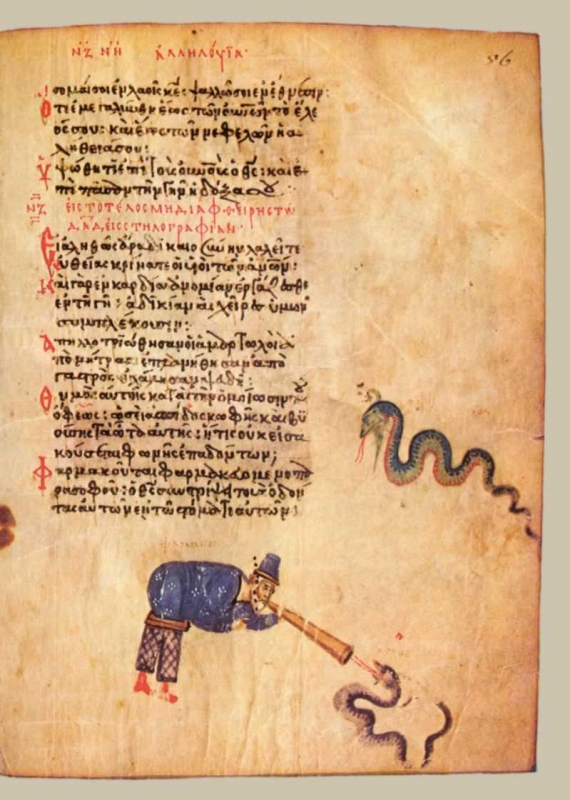 ΝΖ ΝΗ ἀλληλούϊα· 56
σομαί σοι ἐν λαοῖς κε· ψαλλῶ σοι ἐν ἔθνεσιν:
Ὅτι ἐμεγαλύνθη ἕως τῶν οὐνῶν τὸ ἔλε
ός σου: καὶ ἕως τῶν νεφελῶν ἡ ἀ
λήθειά σου:
Ὑψώθητι ἐπὶ τοὺς οὐνοὺς ὁ θς: καὶ ἐ
πὶ πᾶσαν τὴν γῆν ἡ δόξα σου
ΝΖ εἰς τὸ τέλος μὴ διαφθείρης τῶ
δαδ εἰς στιλογραφίαν·
Εἰ ἀληθῶς ἄρα δικαιοσύνην λαλεῖτε
εὐθείας κρίνατε οἱ υἱοὶ τῶν ανων:
Καὶ γὰρ ἐν καρδία ἀνομίαν ἐργάζεσθε
ἐν τῆ γῆ: ἀδικίαν αἱ χεῖρες ὑμῶν
συμπλέκουσιν:
Ἀπηλλοτριώθησαν οἱ ἁμαρτωλοὶ ἀ
πὸ μήτρας: ἐπλανήθησαν ἀπὸ
γαστρὸς ἐλάλησαν ψευδῆ:
Θυμὸς αὐτοῖς κατὰ τὴν ὁμοίωσιν τοῦ
ὄφεως: ὡσεὶ ἀσπίδος κωφῆς καὶ βυ
ούσης τὰ ὦτα αὐτῆς: ἥτις οὐκ εἰσα
κούσεται φωνῆς ἐπαδόντων:
Φαρμακοῦται φαρμακευομένη πα
ρὰ σοφοῦ: ὁ θεὸς συντρίψει τοὺς ὀδόν
τας αὐτῶν ἐν τῶ στόματι αὐτῶν: